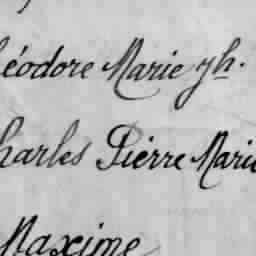 héodore Marie yh.
harles Pierre Marie
Maxime